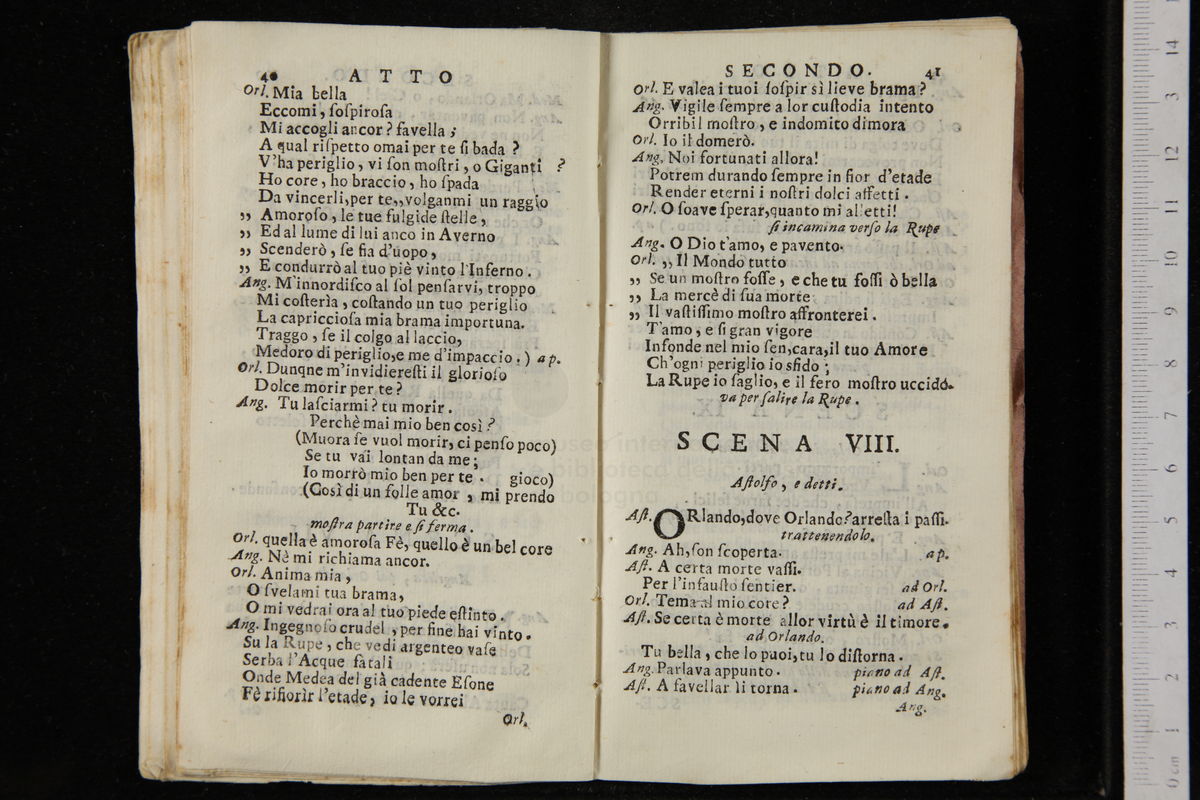 40 ATTO
Orl. Mia bella
Eccomi, ſoſpiroſa
Mi accogli ancor? favella;
A qual riſpetto omai per te ſi bada?
V'ha periglio, vi ſon moſtri, o Giganti ?
Ho core, ho braccio, ho ſpada
Da vincerli, per te,, volganmi un raggio
,, Amoroſo, le tue fulgide ſtelle,
,, Ed al lume di lui anco in Averno
,, Scenderò, ſe fia d'uopo,
,, E condurrò al tuo piè vinto l'Inferno.
Ang. M'innordiſco al ſol penſarvi, troppo
Mi coſteria, coſtando un tuo periglio
La capriccioſa mia brama importuna.
Traggo, ſe il colgo al laccio,
Medoro di periglio, e me d'impaccio.) a p.
Orl. Dunqne m'invidiereſti il glorioſo
Dolce morir per te?
Ang. Tu laſciarmi? tu morir.
Perchè mai mio ben così?
(Muora ſe vuol morir, ci penſo poco)
Se tu vai lontan da me;
Io morrò mio ben per te. gioco)
(Così di un folle amor, mi prendo
Tu &c.
moſtra partire e ſi ferma.
Orl. quella è amoroſa Fè, quello è un bel core
Ang. Nè mi richiama ancor.
Orl. Anima mia,
O ſvelami tua brama,
O mi vedrai ora al tuo piede eſtinto.
Ang. Ingegnoſo crudel, per fine hai vinto.
Su la Rupe, che vedi argenteo vaſe
Serba l'Acque fatali
Onde Medea del già cadente Eſone
Fè rifiorìr l'etade, io le vorrei
Orl.
SECONDO. 41
Orl. E valea i tuoi ſoſpir sì lieve brama?
Ang. Vigile ſempre a lor cuſtodia intento
Orribil moſtro, e indomito dimora
Orl. Io il domerò.
Ang. Noi fortunati allora!
Potrem durando ſempre in fior d'etade
Render eterni i noſtri dolci affetti.
Orl. O ſoave ſperar, quanto mi alletti!
ſi incamina verſo la Rupe
Ang. O Dio t'amo, e pavento.
Orl. ,, Il Mondo tutto
,, Se un moſtro foſſe, e che tu foſſi ò bella
,, La mercè di ſua morte
,, Il vaſtiſſimo moſtro affronterei.
T'amo, e ſi gran vigore
Infonde nel mio ſen, cara, il tuo Amore
Ch'ogni periglio io sfido;
La Rupe io ſaglio, e il fero moſtro uccido.
va per ſalire la Rupe.
SCENA VIII.
Aſtolfo, e detti.
Aſt. ORlando, dove Orlando? arreſta i paſſi.
trattenendolo.
Ang. Ah, ſon ſcoperta. a p.
Aſt. A certa morte vaſſi.
Per l'infauſto ſentier. ad Orl.
Orl. Tema al mio core? ad Aſt.
Aſt. Se certa è morte allor virtù è il timore.
ad Orlando.
Tu bella, che lo puoi, tu lo diſtorna.
Ang. Parlava appunto. piano ad Aſt.
Aſt. A favellar li torna. piano ad Ang.
Ang.